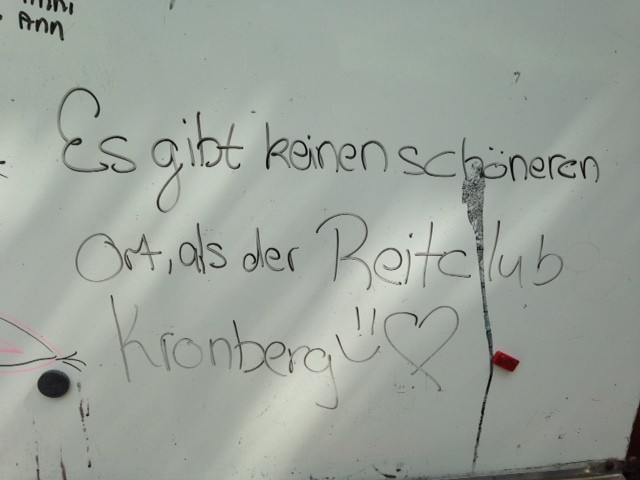 Ann
Es gibt keinen schöneren
Ort, als der Reitclub
Kronberg!! ♡